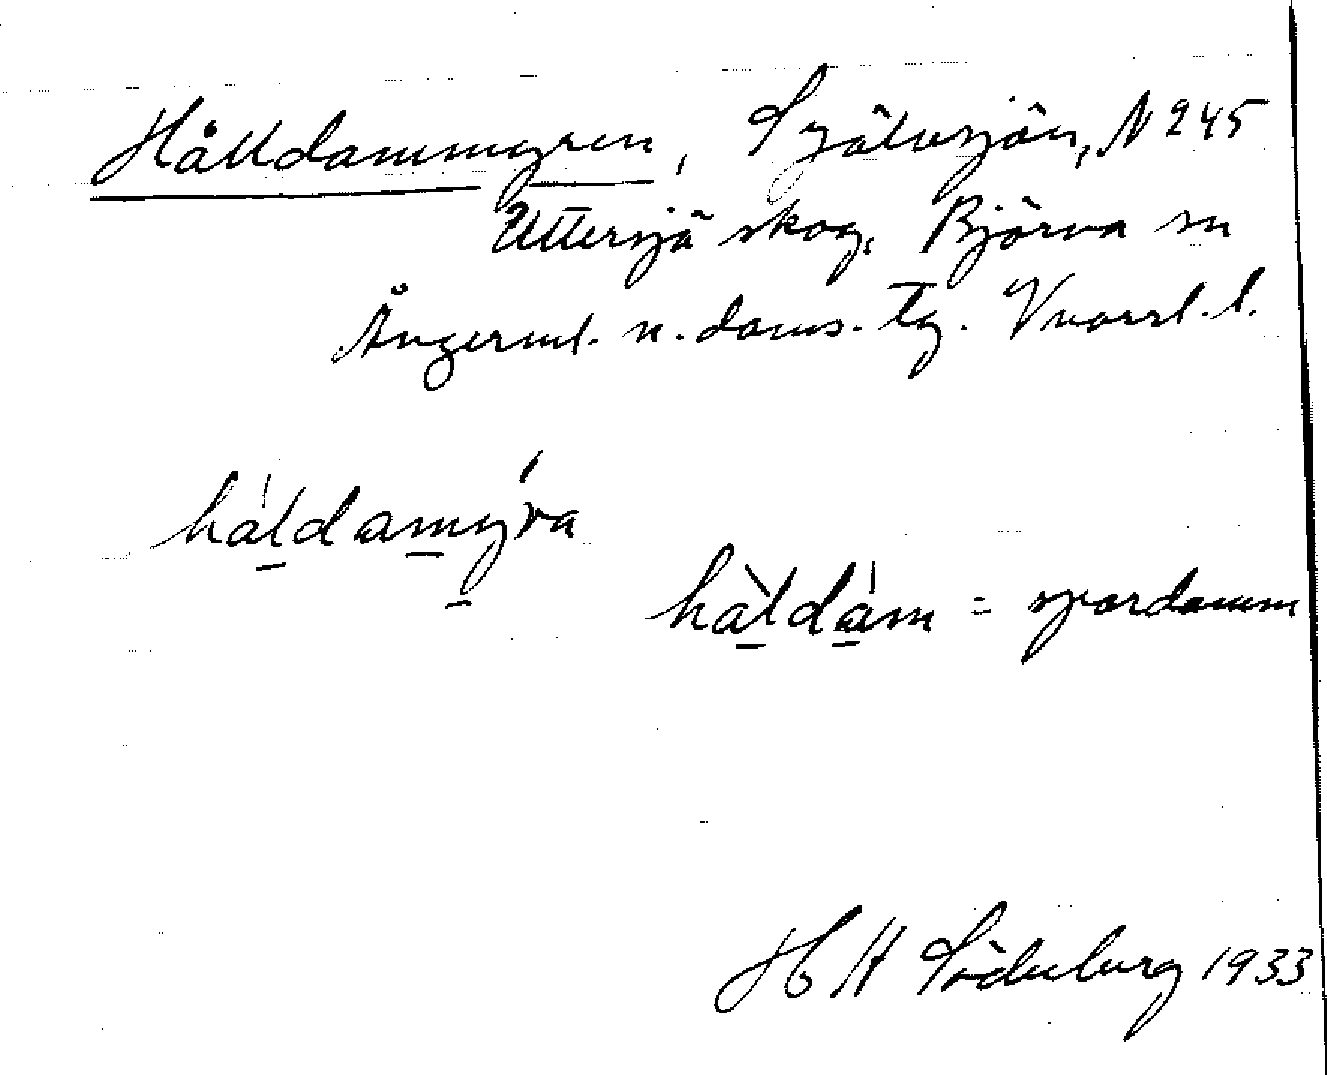 Hålldammyren, Självsjön, N 245
Uttersjö skog, Björna sn
Ångerml. n. doms. tg. V norrl. l.
håldamýra
hàldám = spardamm
H H Söderberg 1933